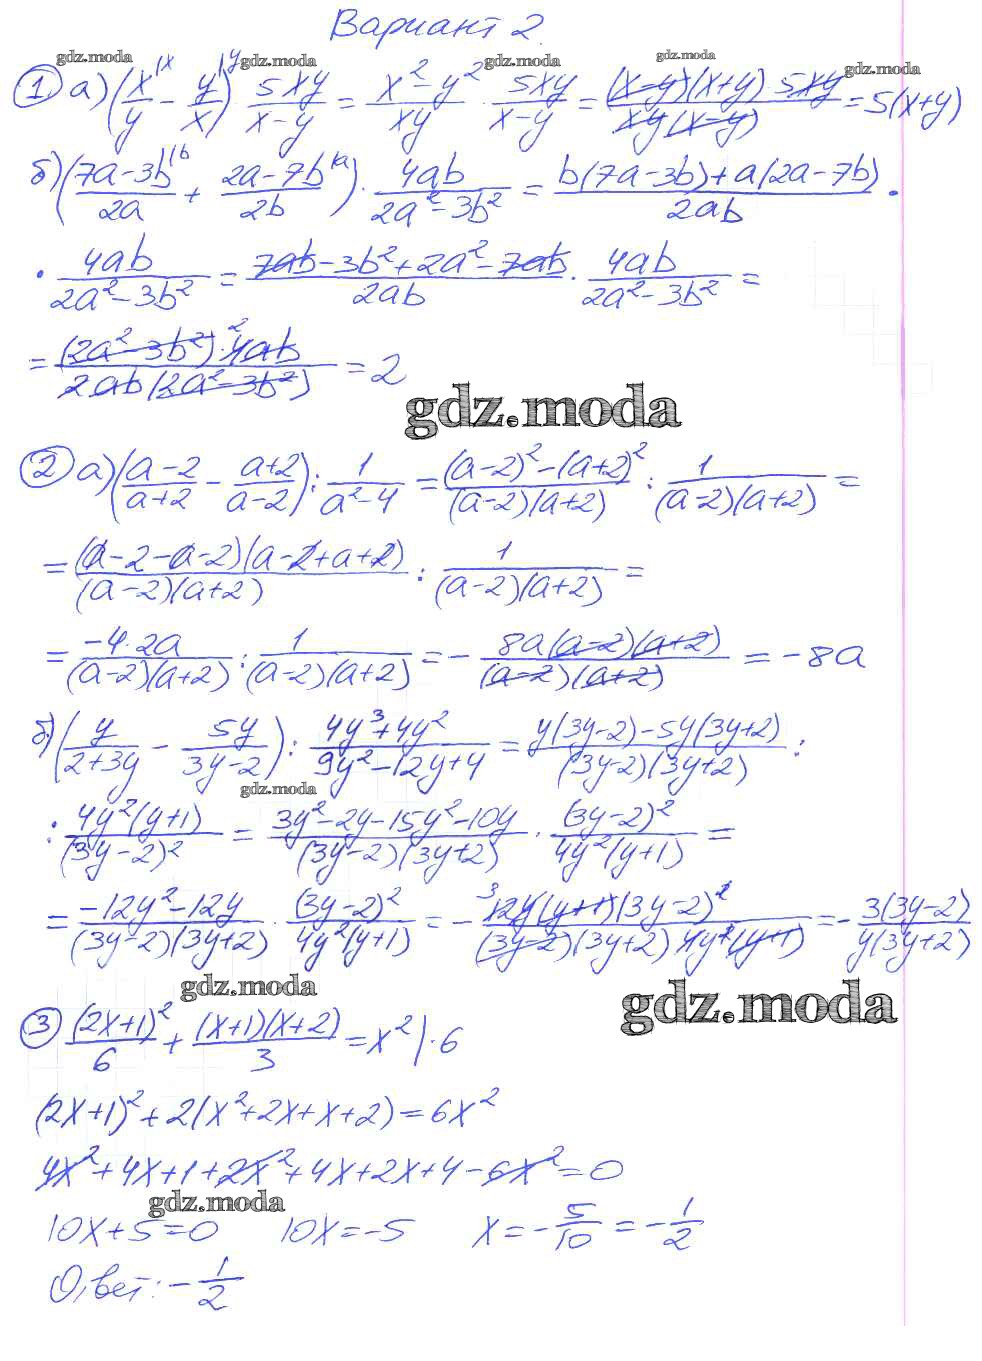 Вариант 2.
gdz.moda gdz.moda gdz.moda gdz.moda gdz.moda
① а) (x/y |x − y/x |y) · 5xy/(x−y) = (x²−y²)/(xy) · 5xy/(x−y) = ((x−y)(x+y) · 5xy)/(xy(x−y)) = 5(x+y)
б) ((7a−3b)/(2a) |b + (2a−7b)/(2b) |a) · 4ab/(2a²−3b²) = (b(7a−3b)+a(2a−7b))/(2ab) ·
· 4ab/(2a²−3b²) = (7ab−3b²+2a²−7ab)/(2ab) · 4ab/(2a²−3b²) =
= ((2a²−3b²)·4ab 2)/(2ab(2a²−3b²)) = 2
gdz.moda
② а) ((a−2)/(a+2) − (a+2)/(a−2)) : 1/(a²−4) = ((a−2)²−(a+2)²)/((a−2)(a+2)) : 1/((a−2)(a+2)) =
= ((a−2−a−2)(a−2+a+2))/((a−2)(a+2)) : 1/((a−2)(a+2)) =
= (−4·2a)/((a−2)(a+2)) : 1/((a−2)(a+2)) = − (8a(a−2)(a+2))/((a−2)(a+2)) = −8a
б) (y/(2+3y) − 5y/(3y−2)) : (4y³+4y²)/(9y²−12y+4) = (y(3y−2)−5y(3y+2))/((3y−2)(3y+2)) :
gdz.moda
: (4y²(y+1))/((3y−2)²) = (3y²−2y−15y²−10y)/((3y−2)(3y+2)) · ((3y−2)²)/(4y²(y+1)) =
= (−12y²−12y)/((3y−2)(3y+2)) · ((3y−2)²)/(4y²(y+1)) = − (3 12y(y+1)(3y−2)²)/((3y−2)(3y+2) 4y²(y+1)) = − (3(3y−2))/(y(3y+2))
gdz.moda gdz.moda
③ ((2x+1)²)/6 + ((x+1)(x+2))/3 = x² | · 6
(2x+1)² + 2(x²+2x+x+2) = 6x²
4x² + 4x + 1 + 2x² + 4x + 2x + 4 − 6x² = 0
gdz.moda
10x + 5 = 0 10x = −5 x = − 5/10 = − 1/2
Ответ: − 1/2